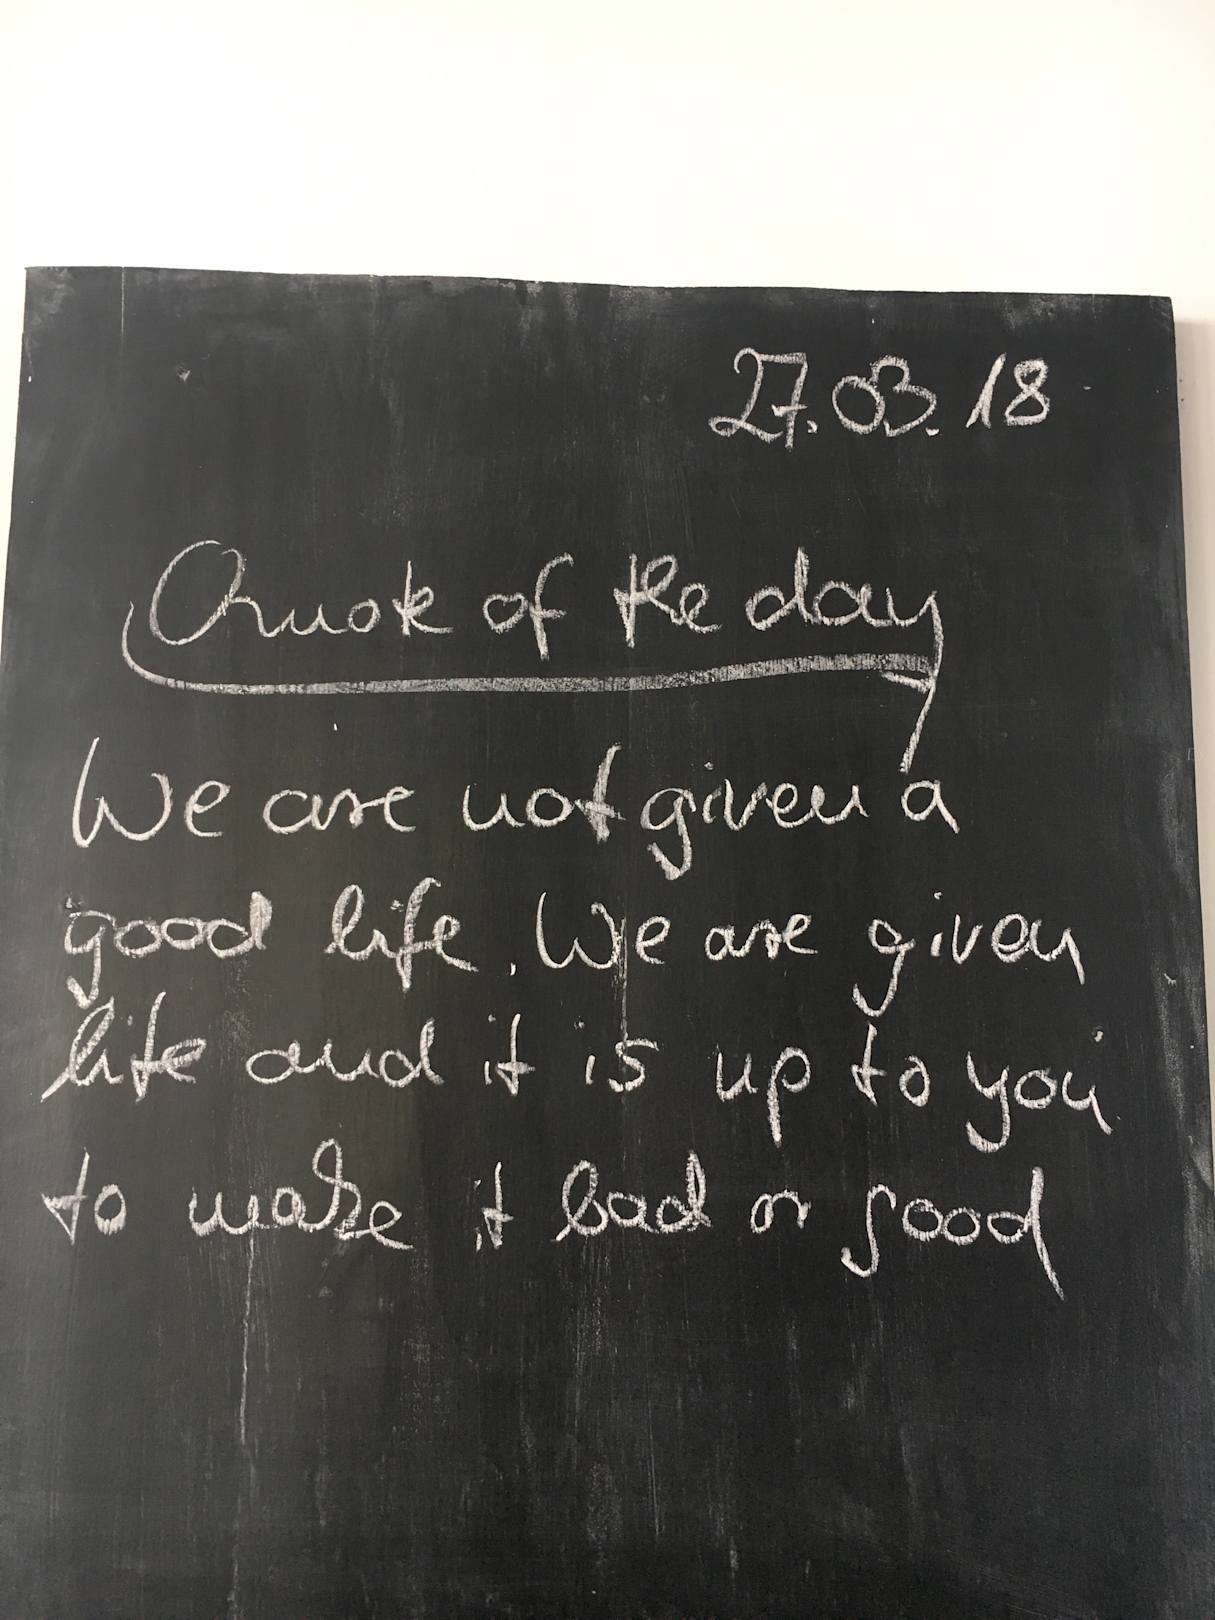 27.03.18
Quote of the day
We are not given a
good life. We are given
life and it is up to you
to make it bad or good